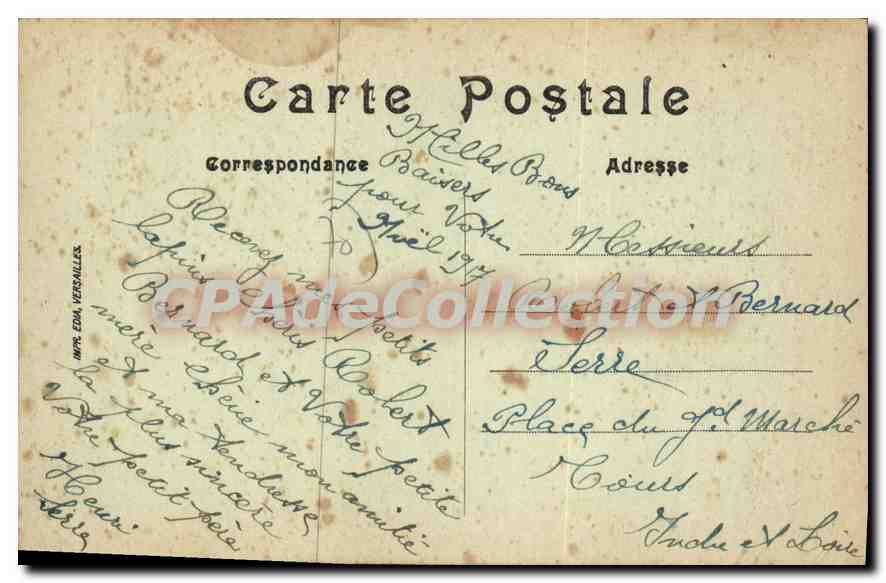 Carte Postale
Correspondance
Adresse
Milles Bons
Baisers
pour Votre
Noël 1917
Recevez mes petits
lapins
Robert
Bernard et Votre petite
mère mon amitié
et ma tendresse
la plus sincère
Votre petit père
Henri
Serre
Messieurs
et Bernard
Serre
Place du Gd Marché
Tours
Indre et Loire
IMPR. EDIA, VERSAILLES.
CPAdeCollection.com